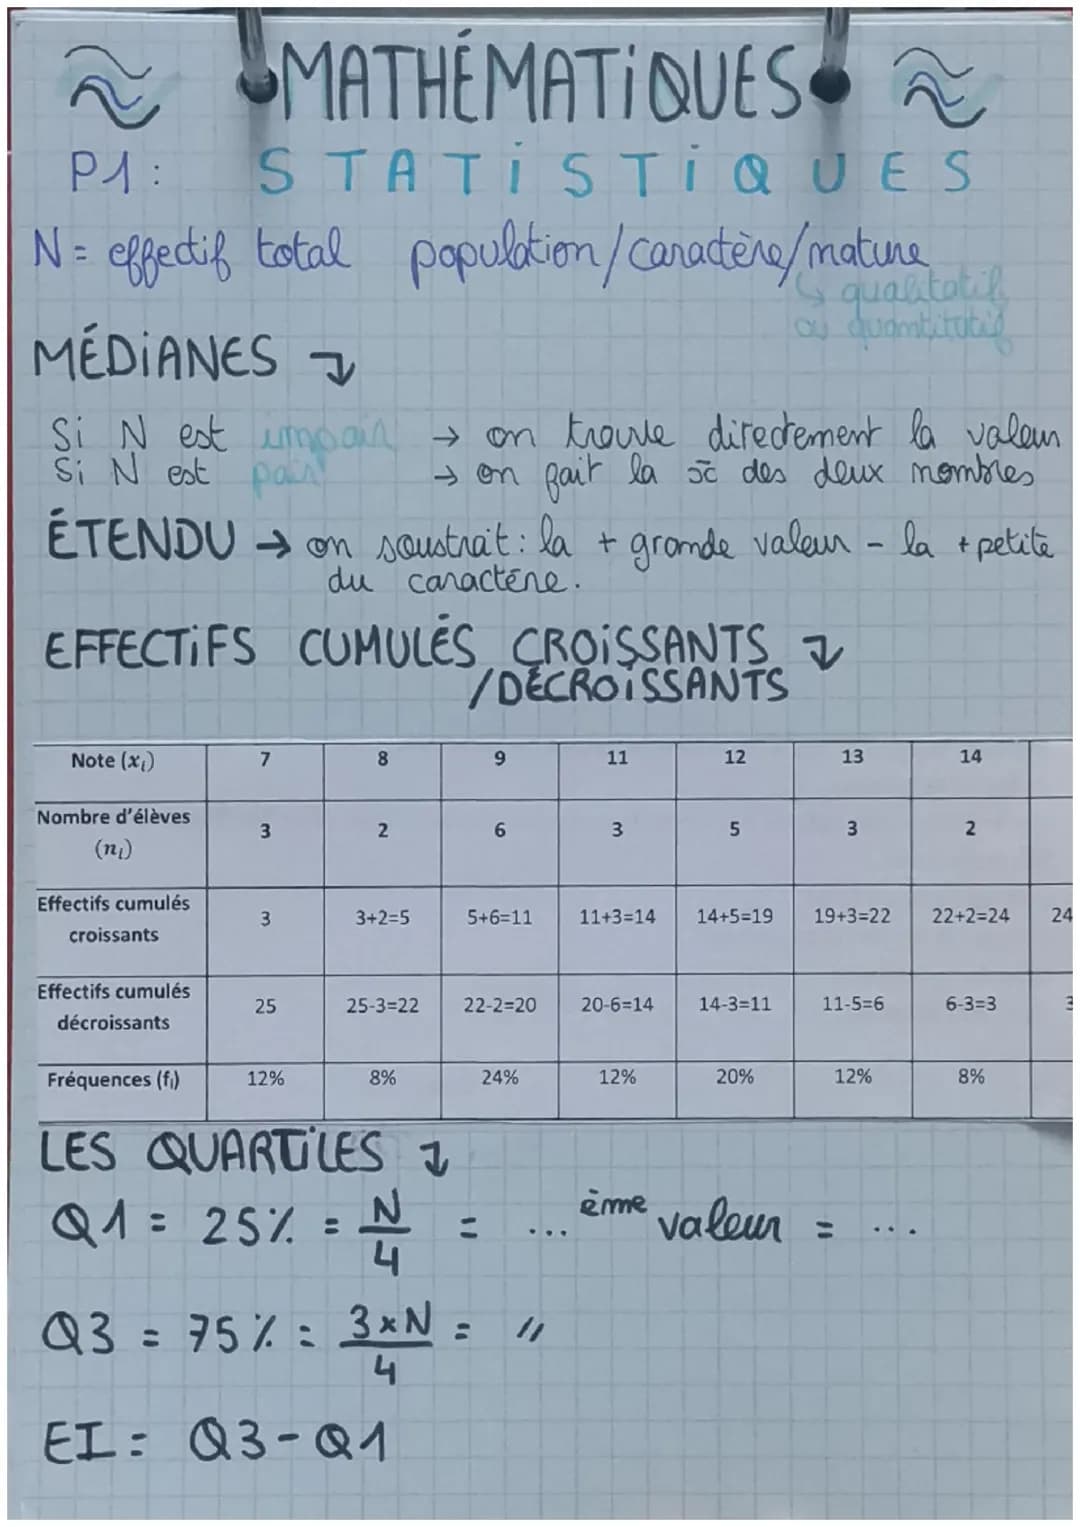 MATHÉMATIQUES
P1: STATISTIQUES
N = effectif total population/caractère/nature
↳ qualitatif
ou quantitatif
MÉDIANES ↴
Si N est impair → on trouve directement la valeur
Si N est pair → on fait la x̄ des deux nombres
ÉTENDU → on soustrait : la + grande valeur - la + petite
du caractère.
EFFECTIFS CUMULÉS CROISSANTS ↴
/DÉCROISSANTS
Note (xᵢ) 7 8 9 11 12 13 14
Nombre d'élèves (nᵢ) 3 2 6 3 5 3 2
Effectifs cumulés croissants 3 3+2=5 5+6=11 11+3=14 14+5=19 19+3=22 22+2=24 24
Effectifs cumulés décroissants 25 25-3=22 22-2=20 20-6=14 14-3=11 11-5=6 6-3=3 3
Fréquences (fᵢ) 12% 8% 24% 12% 20% 12% 8%
LES QUARTILES ↴
Q1 = 25% = N/4 = ... ème valeur = ...
Q3 = 75% = 3×N/4 = //
EI = Q3-Q1